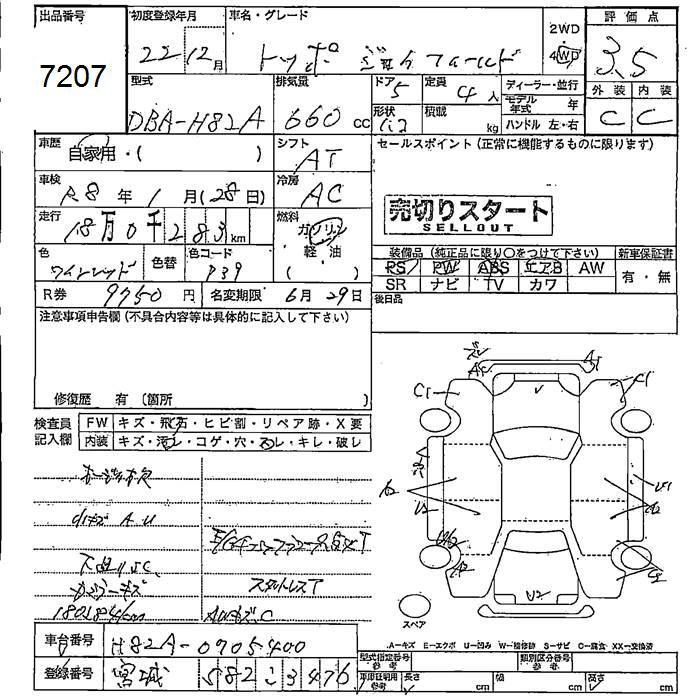 出品番号
7207
初度登録年月
22 12月
車名・グレード
トッポ
2WD
4WD
評価点
3.5
外装 内装
C C
型式
DBA-H82A
排気量
660cc
ドア
5
形状
定員
4人
積載
kg
ディーラー・並行
モデル年式 年
ハンドル 左・右
車歴
自家用・( )
シフト
AT
セールスポイント(正常に機能するものに限ります)
車検
R8年1月(28日)
冷房
AC
売切りスタート
SELLOUT
走行
18万0千283km
燃料
ガソリン
軽油
( )
色
ワインレッド
色替
色コード
P39
装備品(純正品に限り○をつけて下さい)
PS PW ABS エアB AW
SR ナビ TV カワ
新車保証書
有・無
R券 9750円
名変期限 6月29日
後日品
注意事項申告欄(不具合内容等は具体的に記入して下さい)
修復歴 有(箇所 )
検査員記入欄
FW キズ・飛石・ヒビ割・リペア跡・X要
内装 キズ・汚レ・コゲ・穴・スレ・キレ・破レ
スタットレスT
180284km
C1
C1
スペア
A-キズ E-エクボ U-凹み W-補修跡 S-サビ C-腐食 XX-交換済
車台番号
H82A-0705400
登録番号
宮城 582 こ 3476
型式指定番号
参考
類別区分番号
参考
車庫証明用
参考
長さ cm
幅 cm
高さ cm